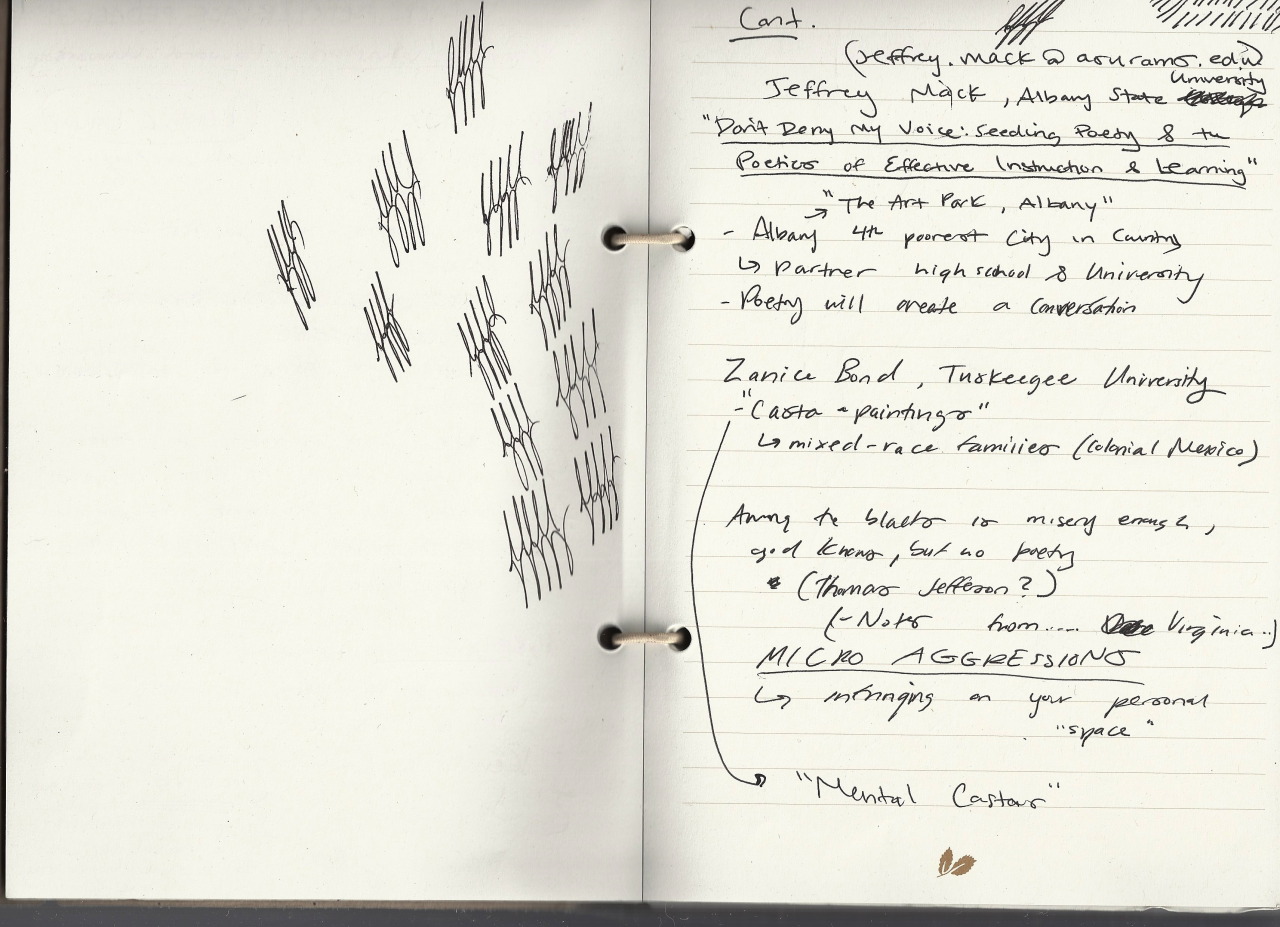 Cont.
(Jeffrey.mack@asurams.edu)
University
Jeffrey Mack, Albany State
"Don't Deny My Voice: Seeding Poetry & the
Poetics of Effective Instruction & Learning"
"The Art Park, Albany"
- Albany 4th poorest City in Country
↳ partner high school & University
- Poetry will create a conversation
Zanice Bond, Tuskeegee University
- "Casta - paintings"
↳ mixed-race families (Colonial Mexico)
Among the blacks is misery enough,
god knows, but no poetry
(Thomas Jefferson?)
(- Notes from.... Virginia..)
MICRO AGGRESSIONS
↳ infringing on your personal
"space"
"Mental Castas"